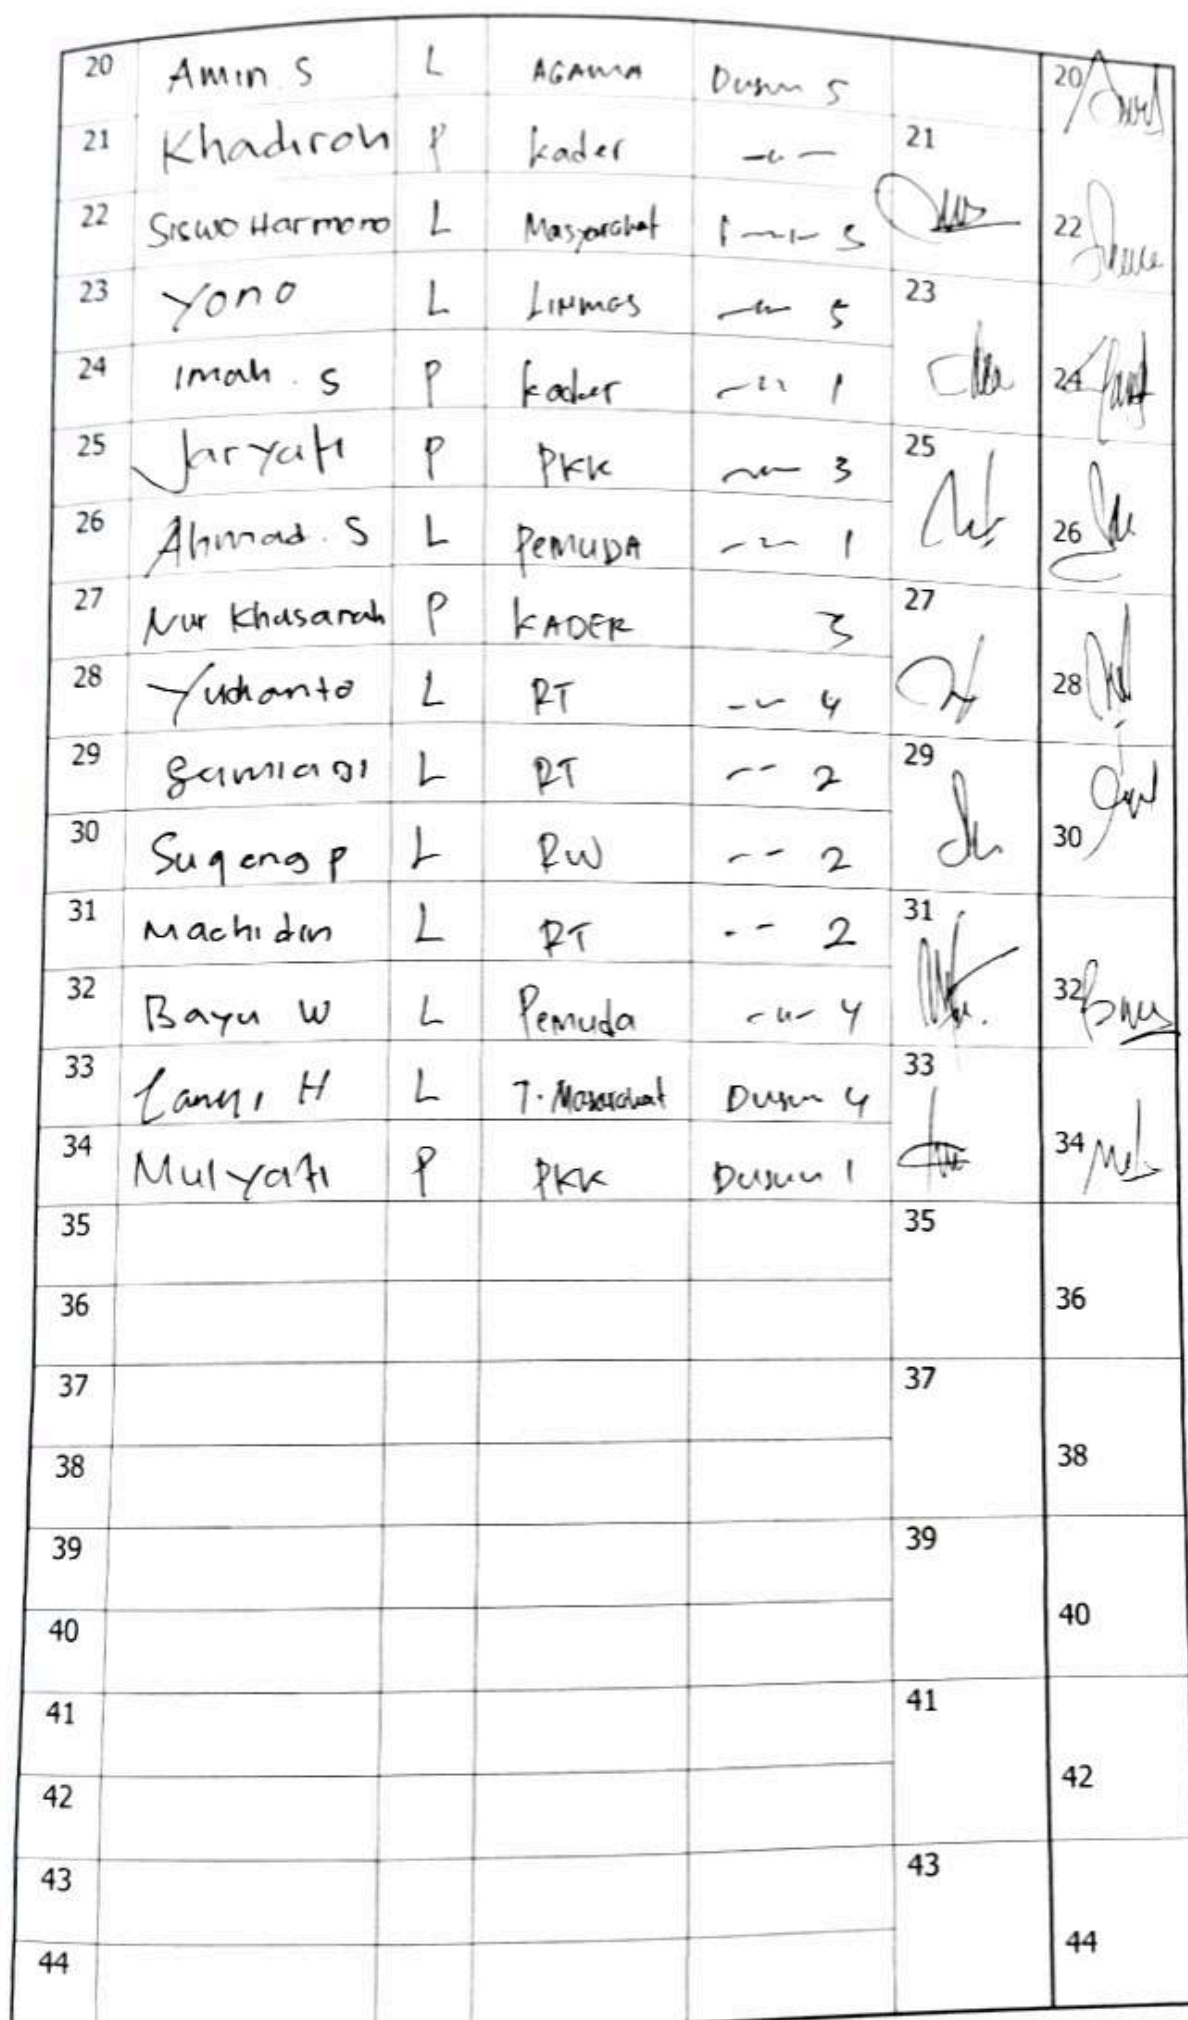 20 Amin. S L AGAMA Dusun 5 20
21 Khadiroh P kader -"- 21
22 Siswo Harmono L Masyarakat 5 22
23 Yono L LINMAS -"- 5 23
24 Imah. S P kader -"- 1 24
25 Jaryati P PKK -"- 3 25
26 Ahmad. S L PEMUDA -"- 1 26
27 Nur Khasanah P KADER 3 27
28 Yudianto L RT -"- 4 28
29 L RT -"- 2 29
30 Sugeng P L RW -"- 2 30
31 Machidin L RT -"- 2 31
32 Bayu W L Pemuda -"- 4 32
33 H L T. Masarakat Dusun 4 33
34 Mulyati P PKK Dusun 1 34
35 35
36 36
37 37
38 38
39 39
40 40
41 41
42 42
43 43
44 44